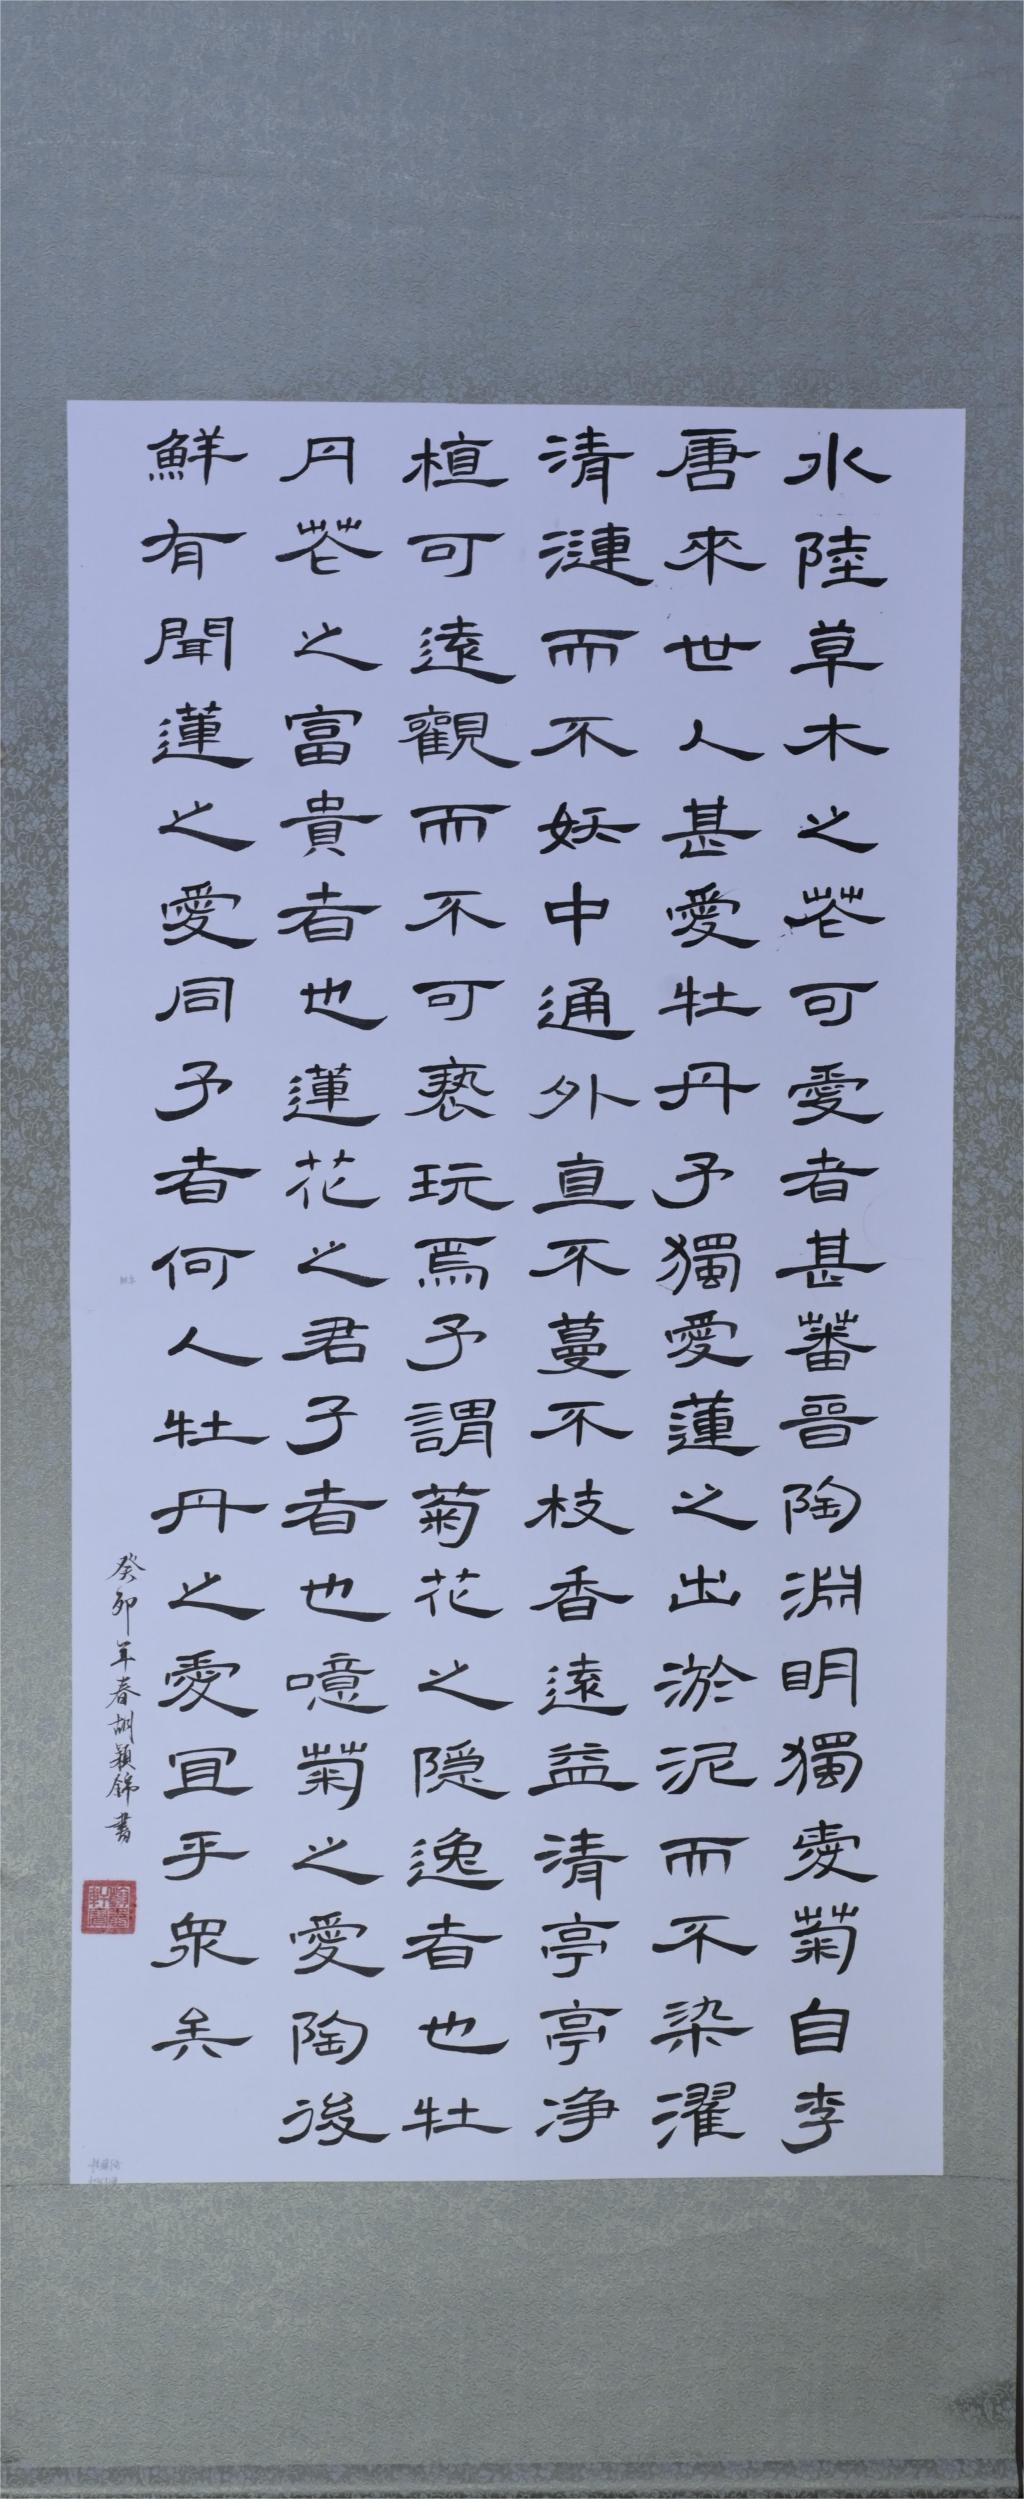 水陸草木之花可愛者甚蕃晉陶淵明獨愛菊自李
唐來世人甚愛牡丹予獨愛蓮之出淤泥而不染濯
清漣而不妖中通外直不蔓不枝香遠益清亭亭净
植可遠觀而不可褻玩焉予謂菊花之隱逸者也牡
丹花之富貴者也蓮花之君子者也噫菊之愛陶後
鮮有聞蓮之愛同予者何人牡丹之愛宜乎眾矣
癸卯年春胡穎錦書